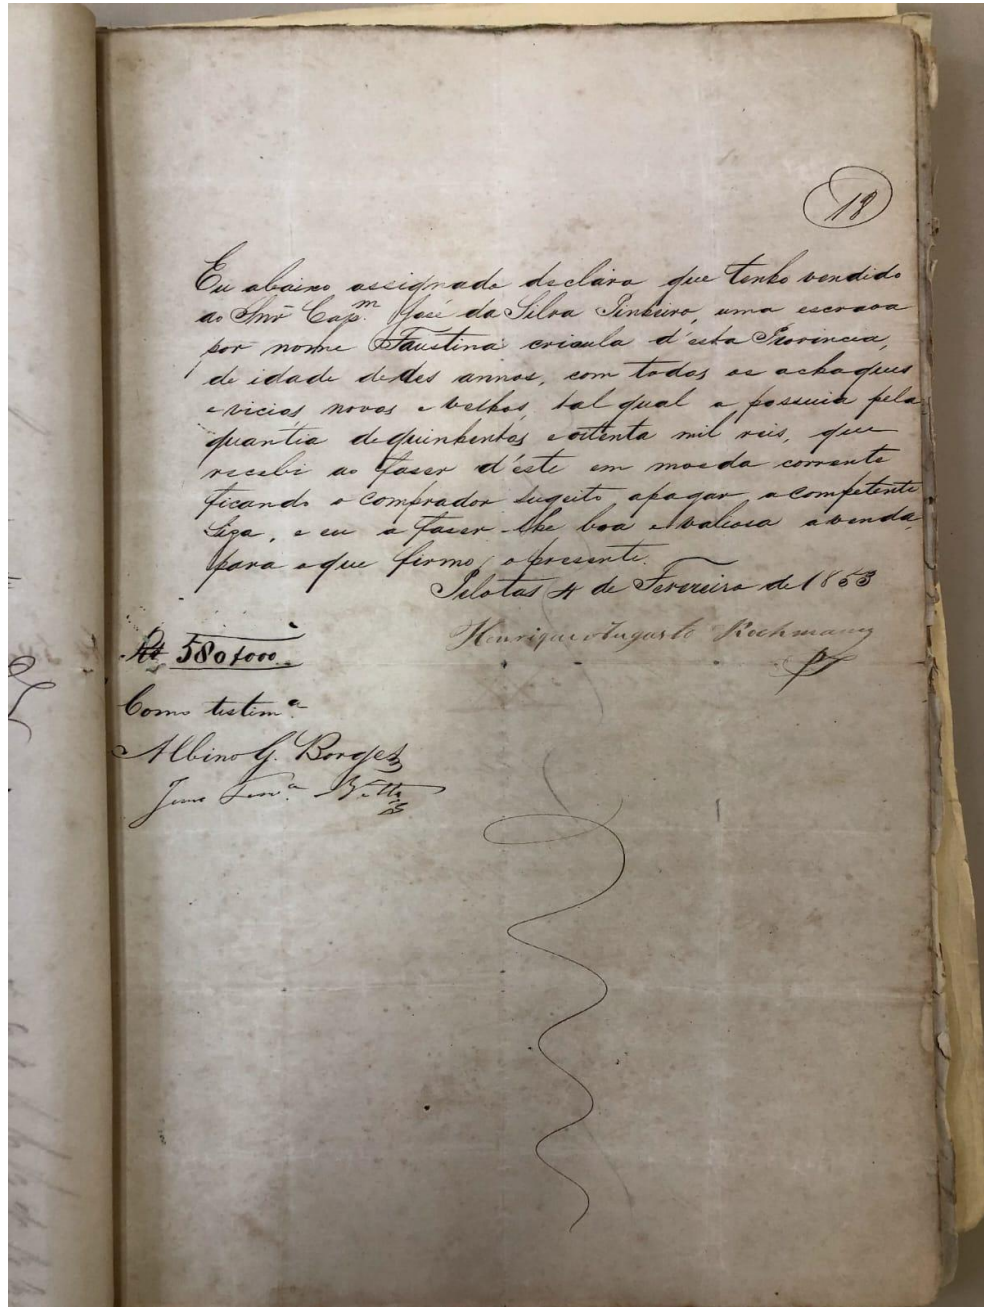 18
Eu abaixo assignado declaro que tenho vendido
ao Snr Cap.m José da Silva Pinheiro, uma escrava
por nome Faustina crioula d'esta Provincia,
de idade de des annos, com todos os achaques
e vicios novos e velhos, tal qual a possuia pela
quantia de quinhentos e oitenta mil reis, que
recebi ao faser d'éste em moeda corrente
ficando o comprador sugeito, apagar, a competente
Siza, e eu a faser lhe boa e valiosa a venda
para o que firmo, o presente.
Pelotas 4 de Fevereiro de 1853
Henrique Augusto
Rs 580$000
Como testim.a
Albino G. Borges